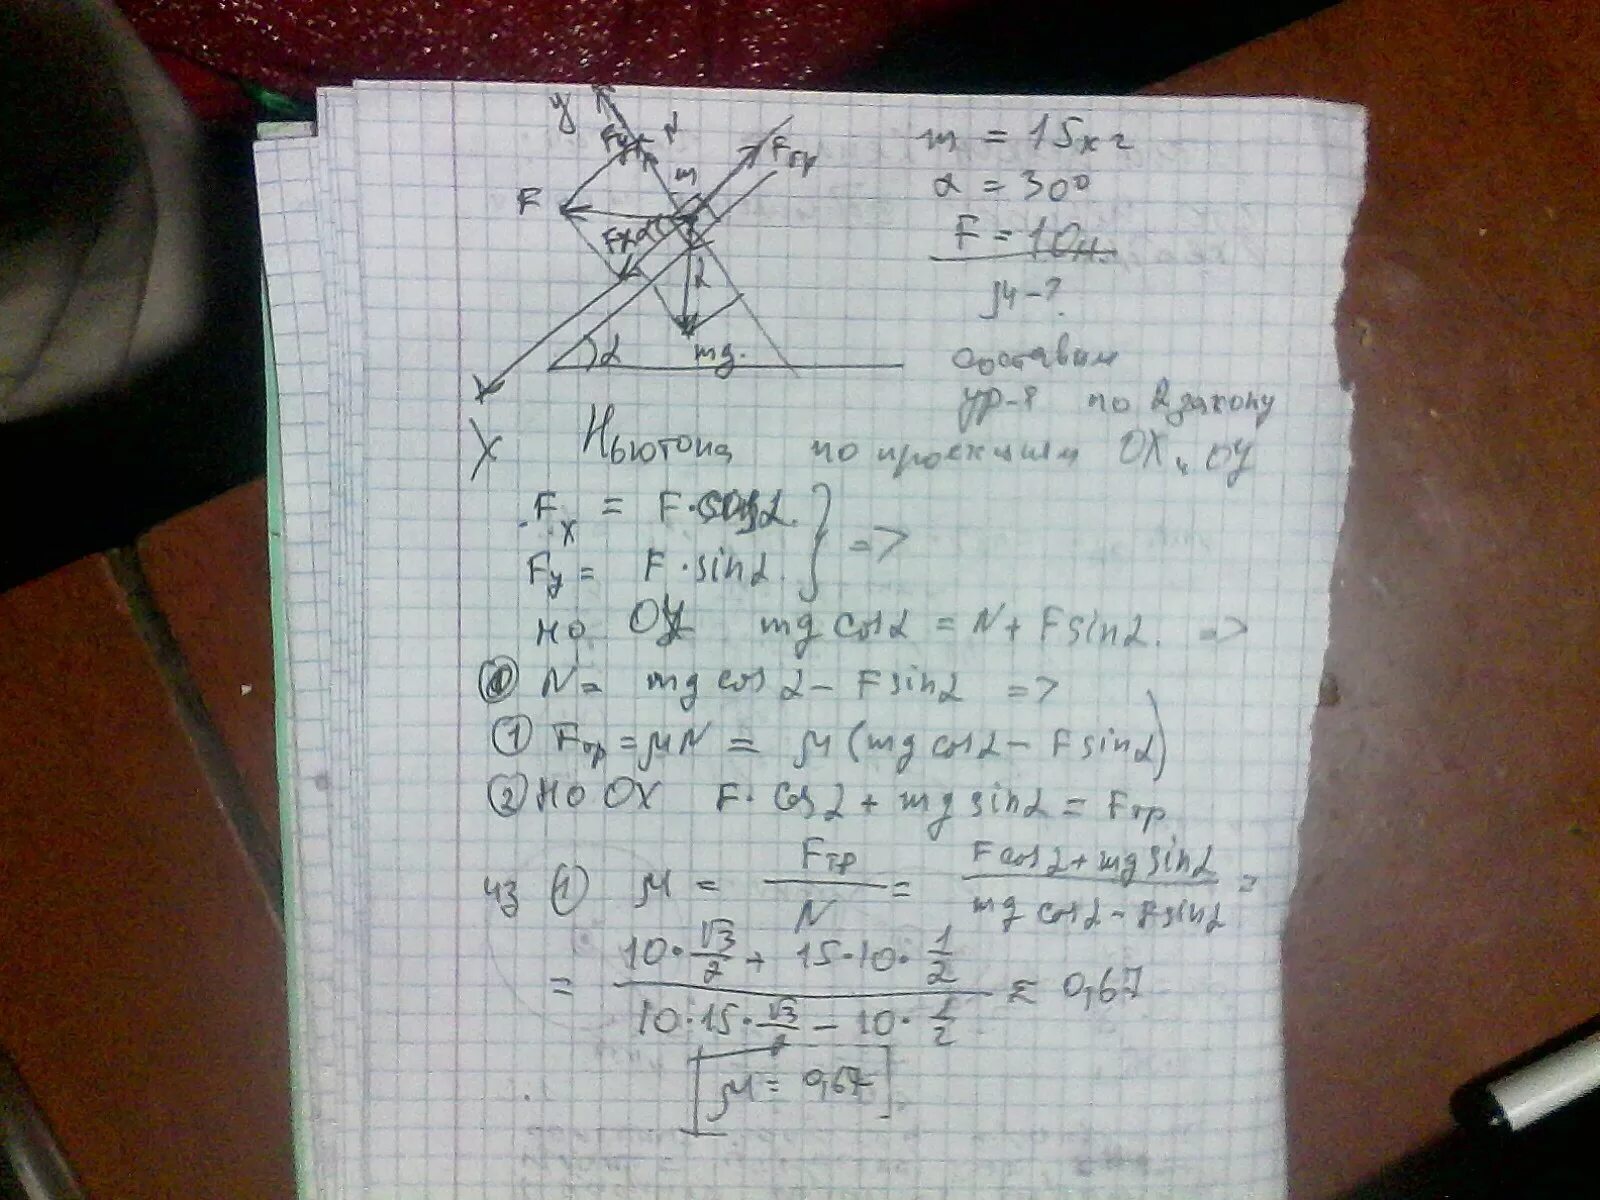 y
Fy N
m
Fтр
F
Fx α
α
α
mg.
X
m = 15кг
α = 30°
F = 10н.
μ-?
составим
ур-я по 2 закону
Ньютона по проекциям OX и OY
Fx = F·cosα
Fy = F·sinα } =>
но OY mg cosα = N + F sinα. =>
N = mg cosα - F sinα =>
① Fтр = μN = μ(mg cosα - F sinα)
② но OX F·cosα + mg sinα = Fтр
из ① μ = Fтр/N = (F cosα + mg sinα)/(mg cosα - F sinα) =
= (10·√3/2 + 15·10·1/2)/(10·15·√3/2 - 10·1/2) ≈ 0,67
[μ = 0,67]